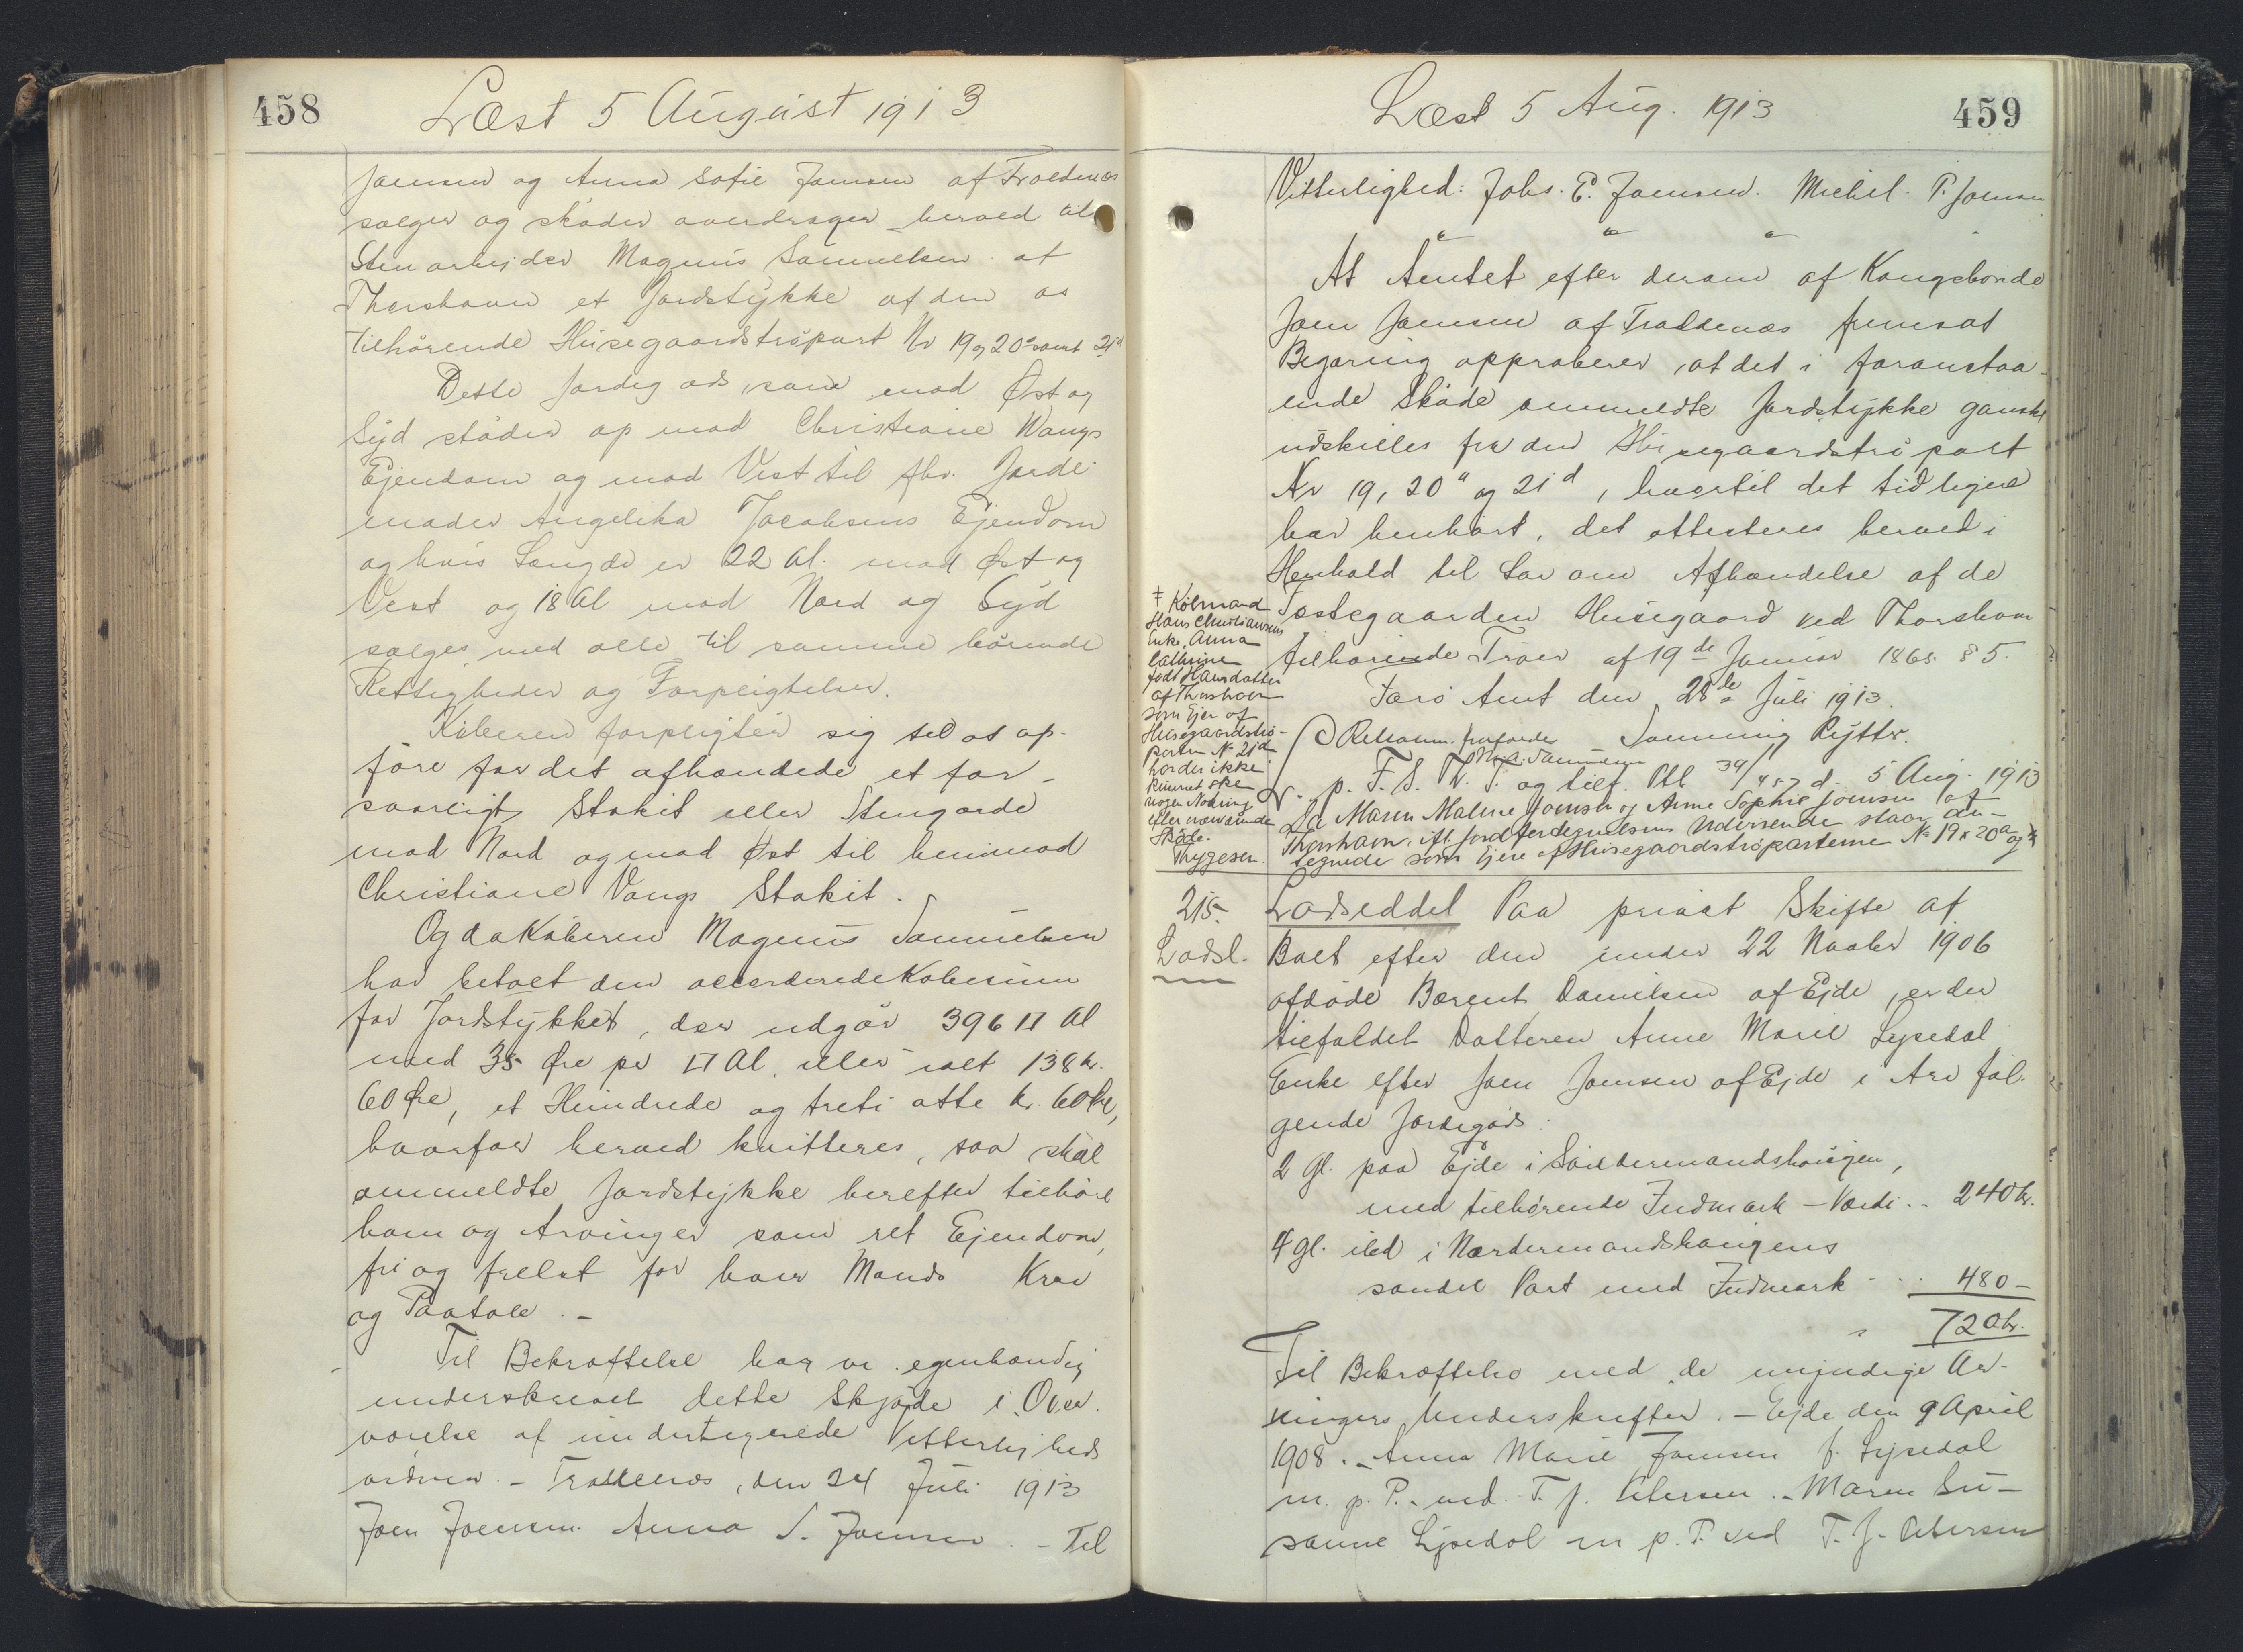 458
Læst 5 August 1913
Joensen og Anna Sofie Joensen af Troldenæs
sælger og skøder overdrager herved til
Stenarbejder Magnus Samuelsen at
Thorshavn et Jordstykke af den os
tilhørende Husegaardstrøpart Nr 19 og 20a samt 21d
Dette Jordegods, som mod Øst og
Syd støder op mod Christiane Wangs
Ejendom og mod Vest til fhv. Jorde-
moder Angelika Jacobsens Ejendom
og hvis Længde er 22 Al. mod Øst og
Vest og 18 Al mod Nord og Syd
sælges med alle til samme hørende
Rettigheder og Forpligtelser.
Køberen forpligter sig til at op-
føre for det afhændede et for-
svarligt Stakit eller Stengærde
mod Nord og mod Øst til henimod
Christiane Vangs Stakit.
Og da Køberen Magnus Samuelsen
har betalt den accorderede Købesum
for Jordstykket, der udgør 396 □ Al
med 35 Øre pr □ Al. eller ialt 138 kr.
60 Øre, et Hundrede og treti otte kr. 60 Øre,
hvorfor herved kvitteres, saa skal
ommeldte Jordstykke herefter tilhøre
ham og Arvinger som ret Ejendom,
fri og frelst for hver Mands Krav
og Paatale. –
Til Bekræftelse har vi egenhændig
underskrevet dette Skjøde i Over-
værelse af undertegnede Vitterligheds
vidner. – Troldenæs, den 24 Juli 1913
Joen Joensen. Anna S. Joensen. – Til
Læst 5 Aug. 1913
459
Vitterlighed: Johs. E. Joensen. Michel P. Joensen
At Amtet efter derom af Kongsbonde
Joen Joensen af Troldenæs fremsat
Begæring approberer, at det i foranstaa-
ende Skøde ommeldte Jordstykke ganske
udskilles fra den Husegaardstrøpart
Nr 19, 20a og 21d, hvortil det tidligere
har henhørt, det attesteres herved i
Henhold til Lov om Afhændelse af de
Fæstegaarden Husegaard ved Thorshavn
tilhørende Trøer af 19de Januar 1865 § 5.
Færø Amt den 28de Juli 1913.
Svenning Rytter.
p. F. S. V. T. og tilf. Ptl 39/457 d. 5 Aug. 1913
Da Maren Malene Joensen og Anne Sophie Joensen af
Thorshavn ifl. Jordfordegnelsens Udvisende staar an-
tegnede som Ejere af Husegaardstrøparterne No 19 & 20a og ‡
‡ Købmand
Hans Christiansens
Enke, Anna
Cathrine
født Hansdatter
af Thorshavn
som Ejer af
Husegaardstrø-
parten No 21d
har der ikke
kunnet ske
nogen Notering
efter nærværende
Skøde.
Thygesen.
215.
Lodsl.
Lodseddel Paa privat Skifte af
Boet efter den under 22 Novbr 1906
afdøde Berent Danielsen af Ejde, er der
tilfaldet Datteren Anne Marie Lysedal
Enke efter Joen Joensen af Ejde i Arv føl-
gende Jordegods:
2 Gl. paa Ejde i Søndermandshaugen,
med tilhørende Indmark – Værdi .. 240 kr.
4 gl. ibd i Nordermandshaugens
søndre Part med Indmark ... 480 –
720 kr.
Til Bekræftelse med de myndige Ar-
vingers Underskrifter. – Ejde den 9 April
1908. – Anna Marie Joensen f. Lysedal
m. p. P. ved T. J. Petersen. – Maren Su-
sanne Lysedal m p. P. ved T. J. Petersen